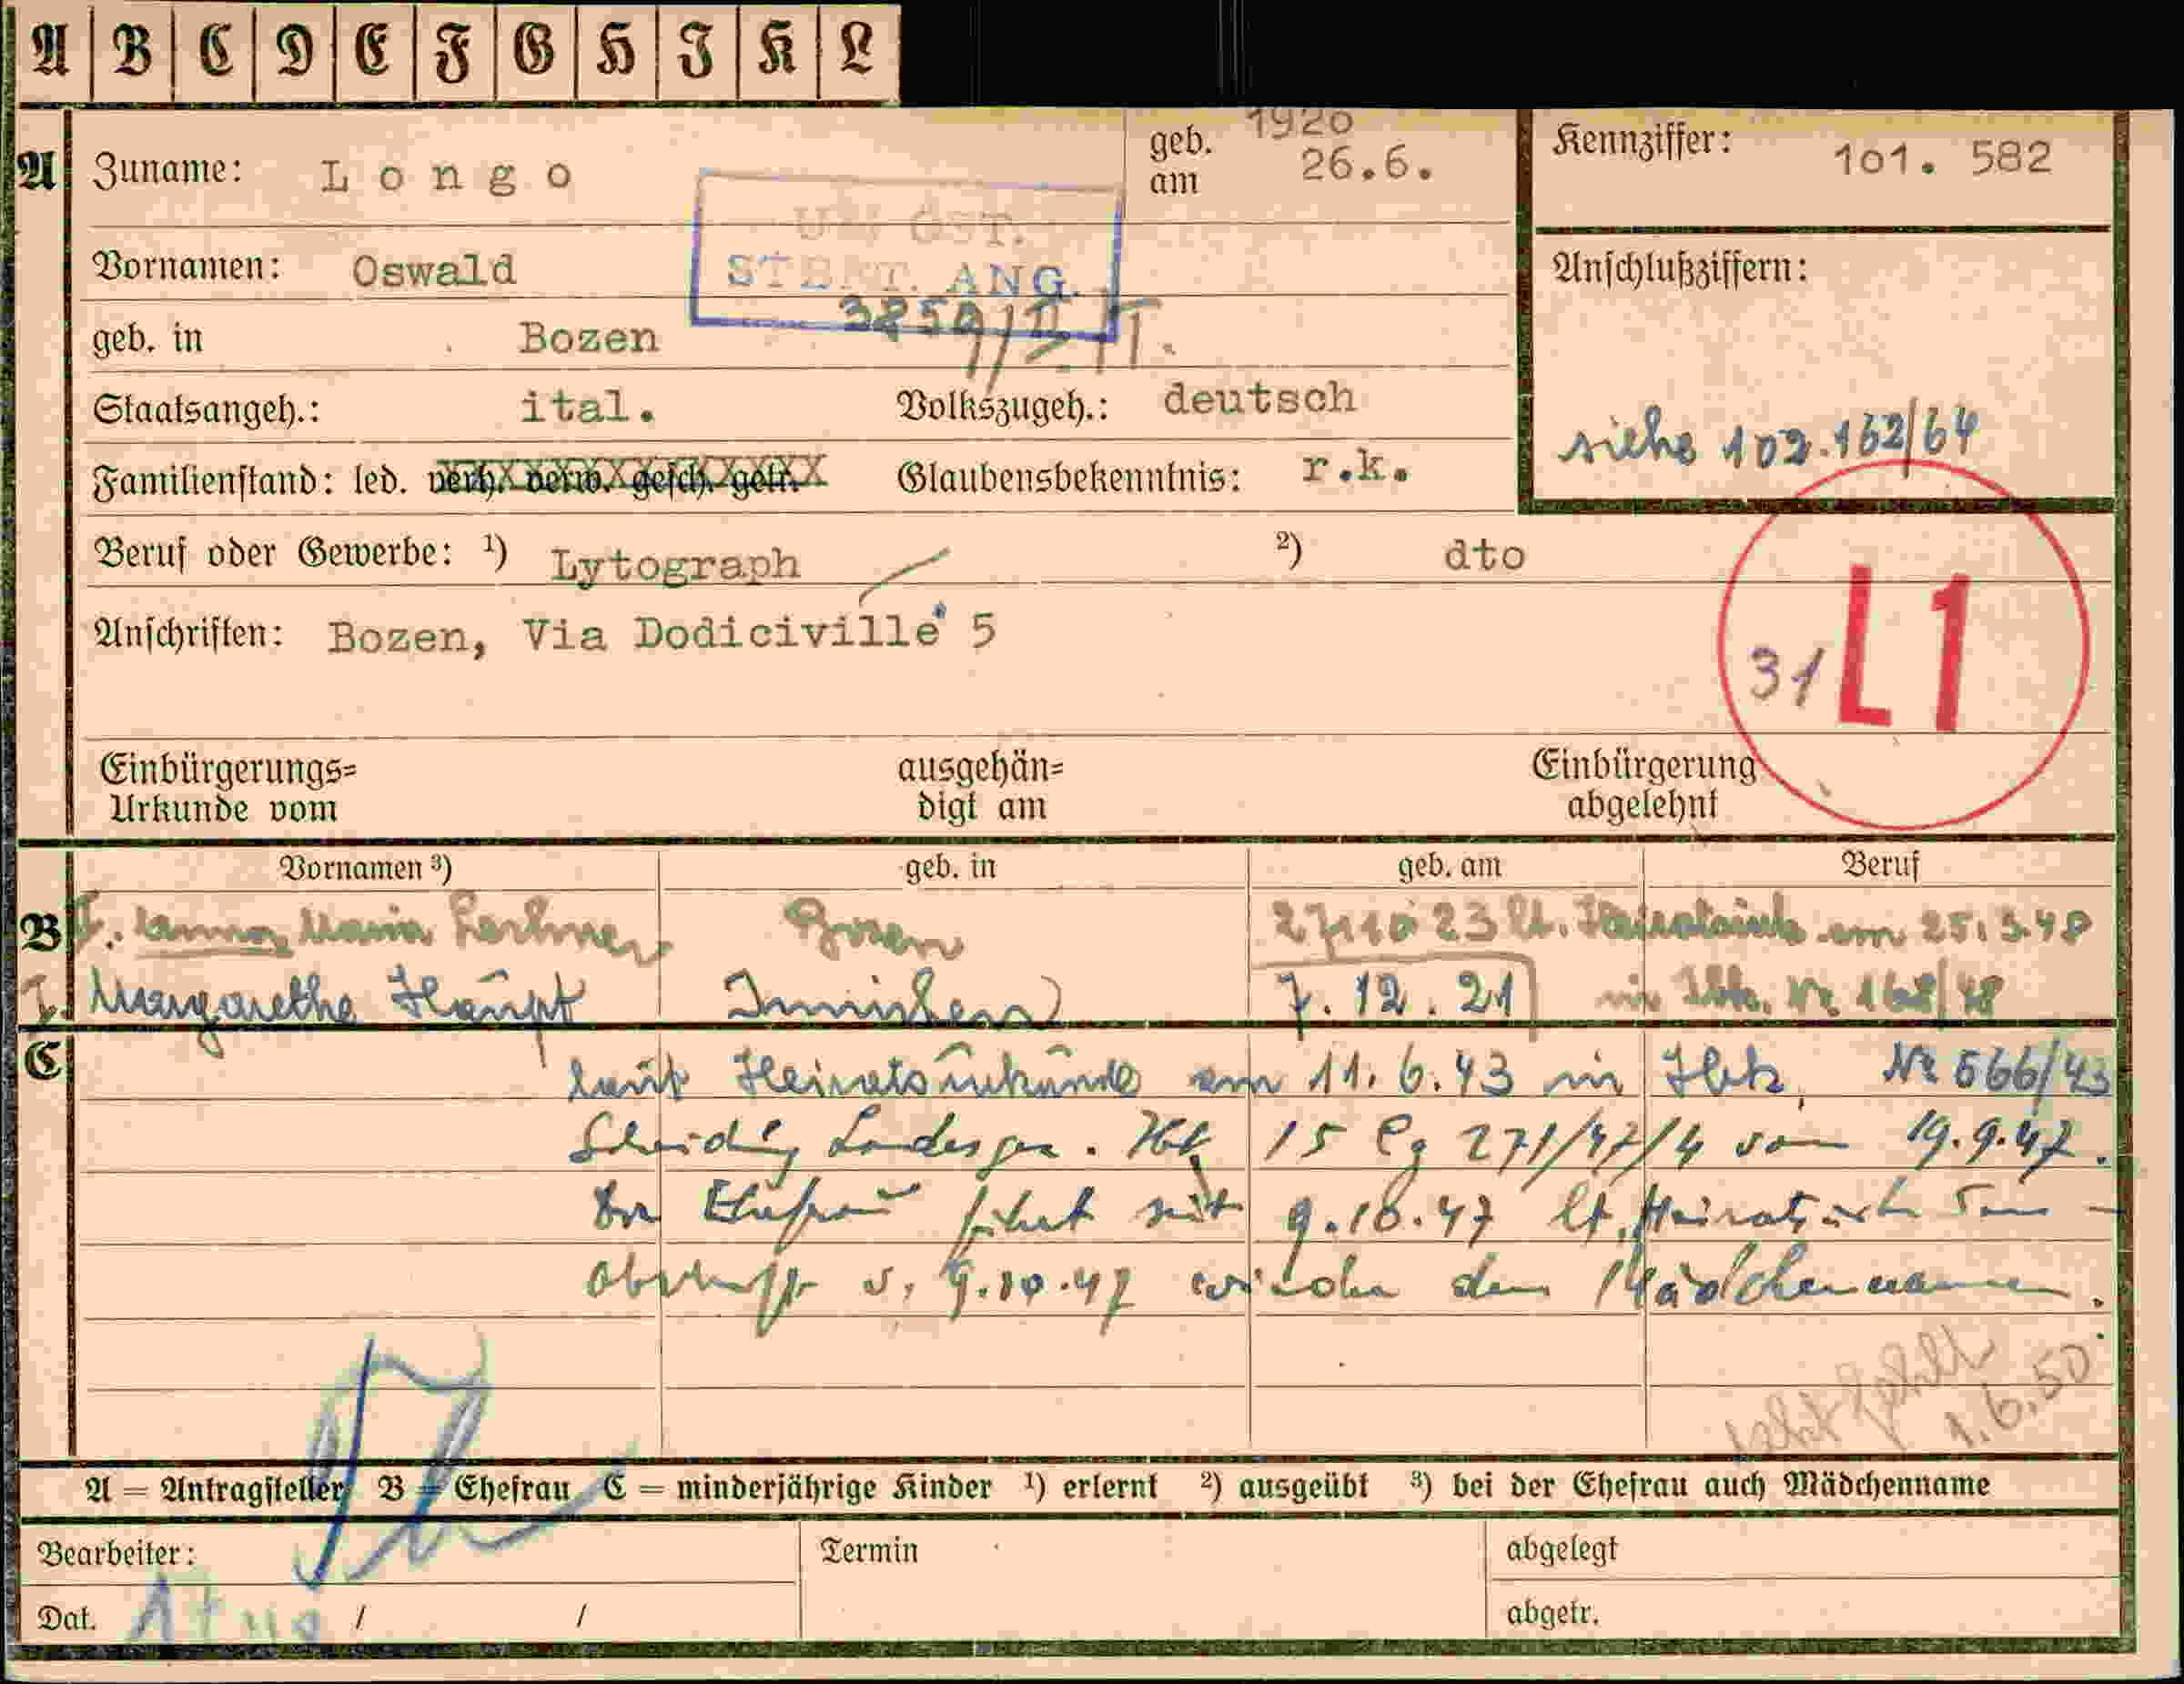 A B C D E F G H I K L
A Zuname: Longo geb. am 1920 26.6. Kennziffer: 101. 582
ÖST.
Vornamen: Oswald STBRT. ANG. Anschlußziffern:
geb. in Bozen
Staatsangeh.: ital. Volkszugeh.: deutsch siehe 102.162/64
Familienstand: led. verh. verw. gesch. getr. Glaubensbekenntnis: r.k.
Beruf oder Gewerbe: ¹) Lytograph ²) dto
Anschriften: Bozen, Via Dodiciville 5
31 L1
Einbürgerungs= ausgehän= Einbürgerung
Urkunde vom digt am abgelehnt
Vornamen ³) geb. in geb. am Beruf
B Anna Maria Bozen 27.10 23 lt. Heiratsurk. am 25.3.48
I. Margarethe Haupt Innichen 7. 12. 21 in Ibk. Nr 168/48
C laut Heiratsurkunde am 11.6.43 in Ibk, Nr 566/43
Scheidung Landesger. Ibk 15 Cg 271/47/4 vom 19.9.47.
Die Ehefrau führt seit 9.10.47 lt. Heiratsurk
v. 9.10.47 wieder den Mädchennamen.
1.6.50
A = Antragsteller B = Ehefrau C = minderjährige Kinder ¹) erlernt ²) ausgeübt ³) bei der Ehefrau auch Mädchenname
Bearbeiter: Termin abgelegt
Dat. / / abgetr.